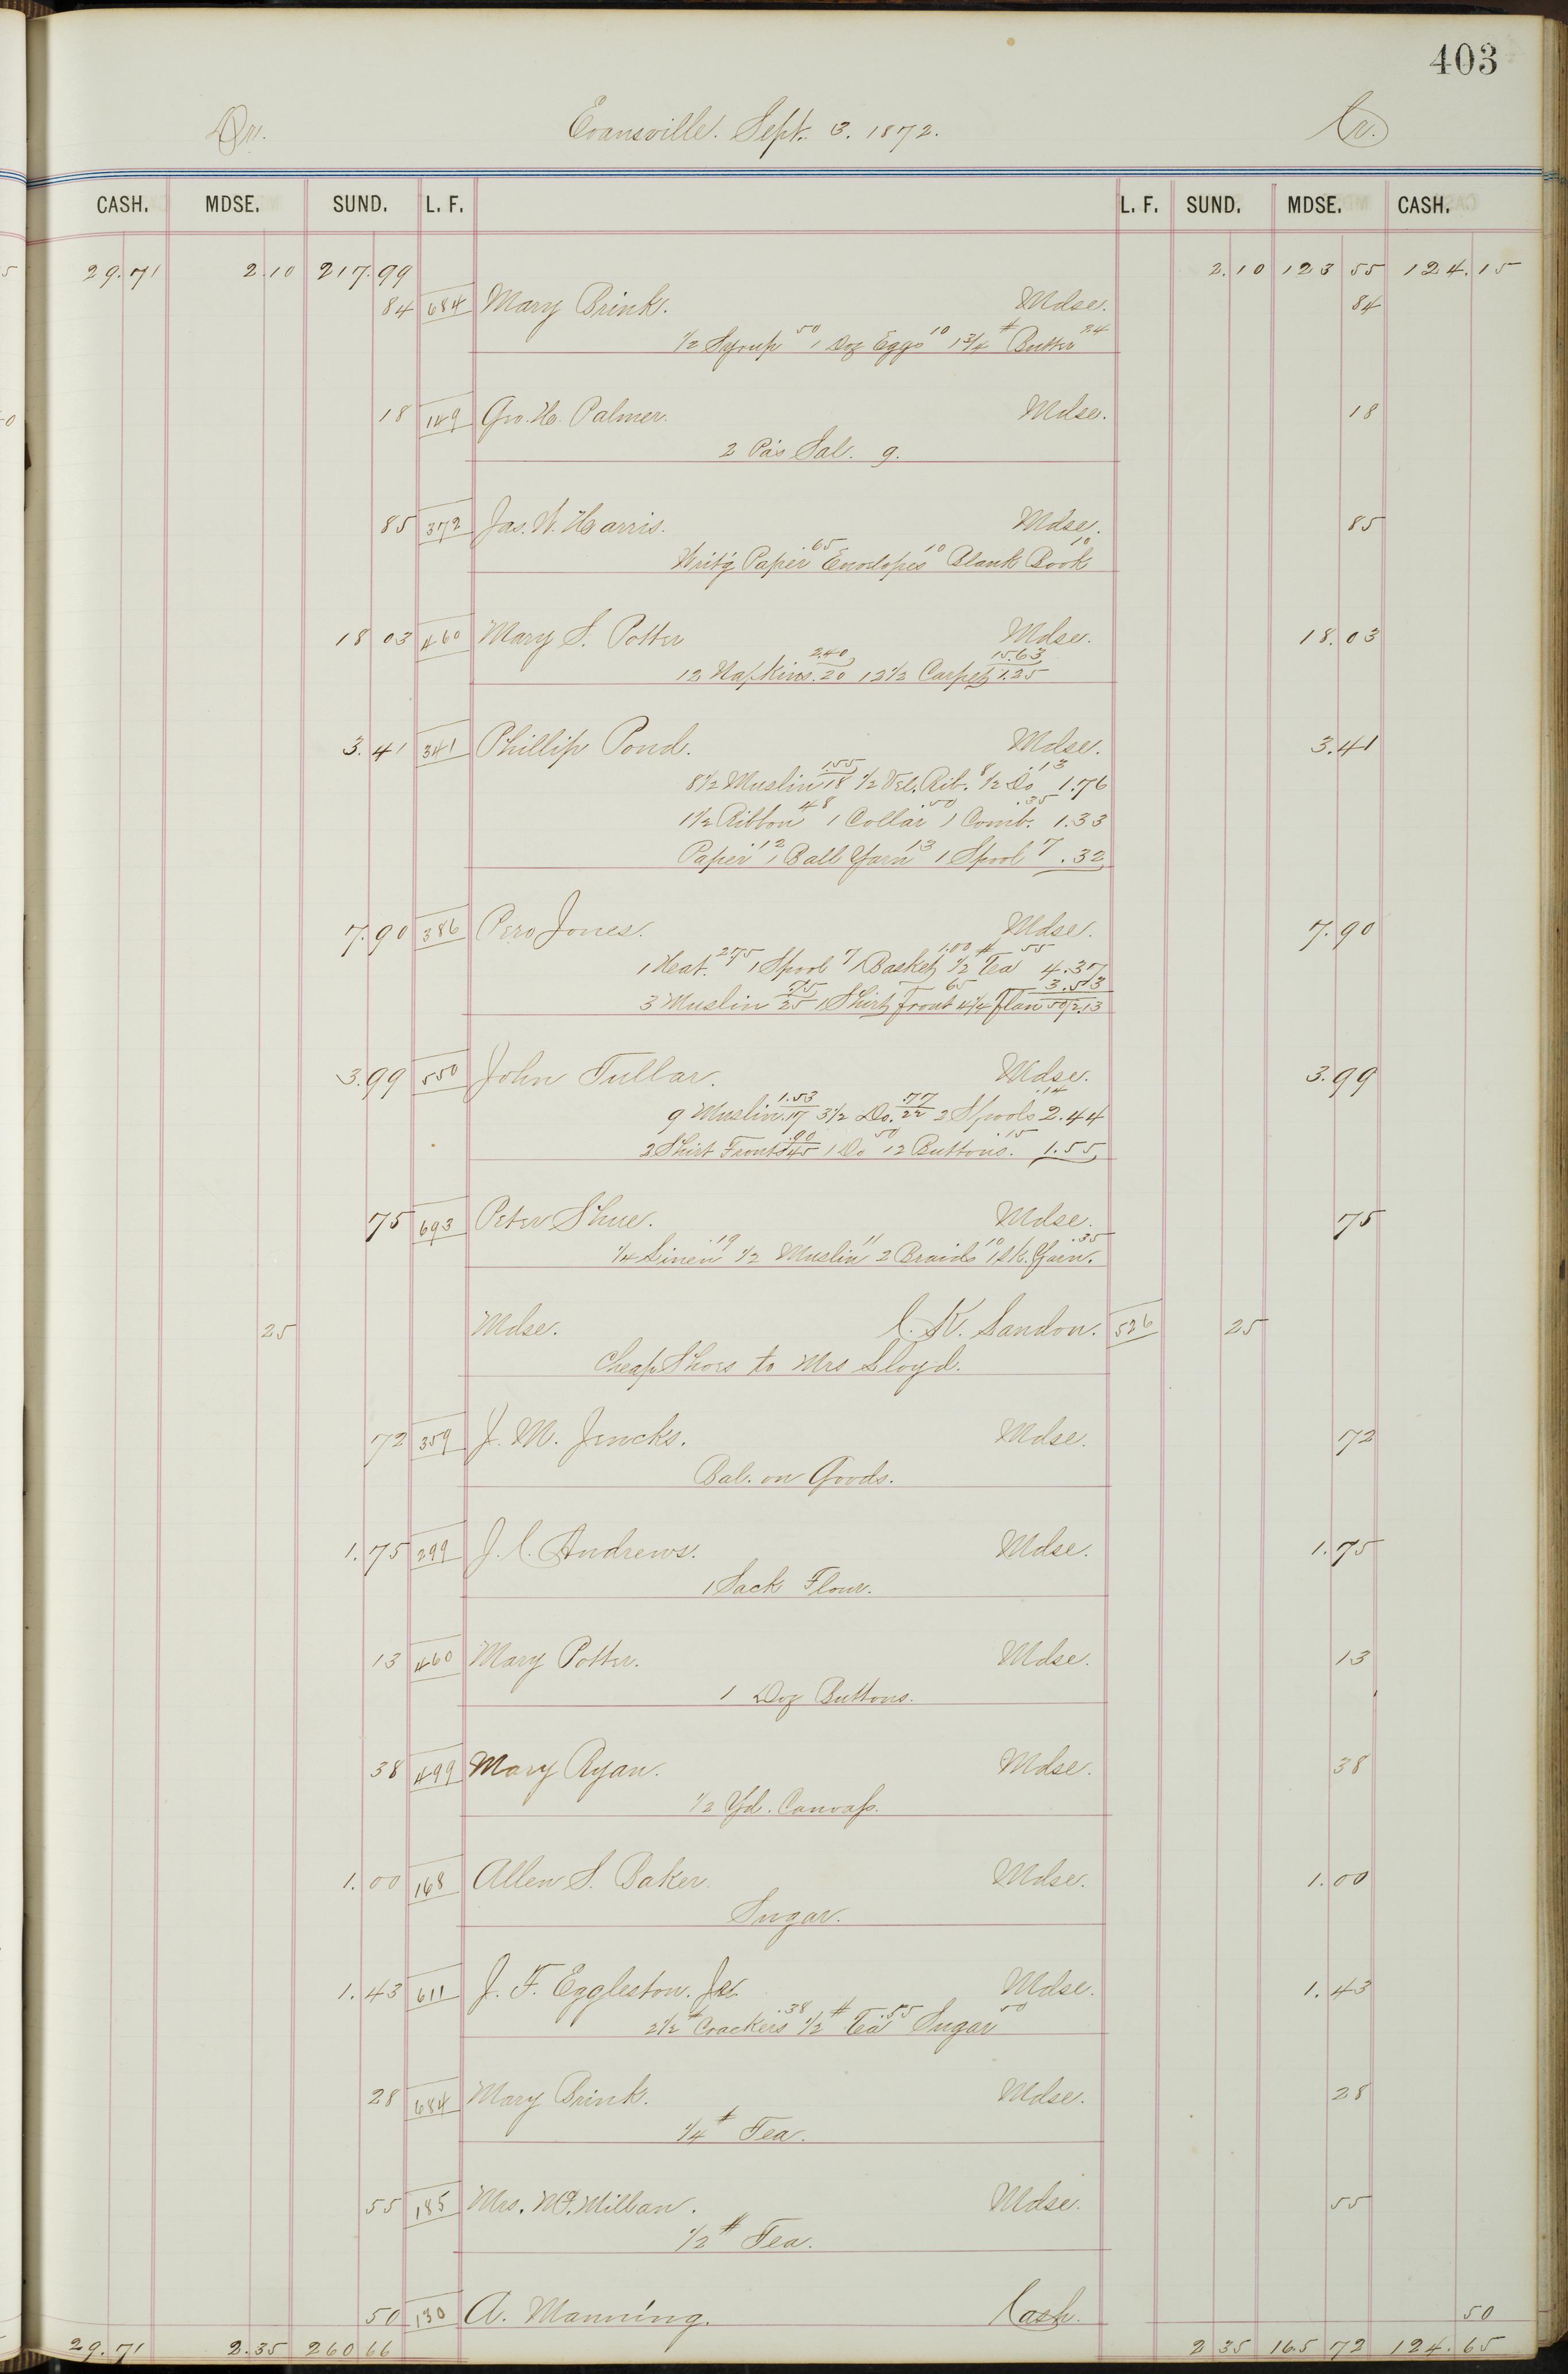 403
Dr. Evansville. Sept. 3. 1872. Cr.
CASH. MDSE. SUND. L. F. L. F. SUND. MDSE. CASH.
29.71 2.10 217.99 2.10 123 55 124.15
84 684 Mary Brink. Mdse. 84
1/2 Syrup 50 1 Doz Eggs 10 1 3/4 # Butter 24
18 149 Geo. H. Palmer. Mdse. 18
2 Pa's Sal. 9.
85 372 Jas. W. Harris. Mdse. 85
Writ'g Paper .65 Envelopes 10 Blank Book 10
18 03 460 Mary S. Potter Mdse. 18.03
12 Napkins 2.40/.20 12 1/2 Carpet 15.63/1.25
3.41 341 Phillip Pond. Mdse. 3.41
8 1/2 Muslin 1.55/18 1/2 Vel. Rib. 8 1/2 Do .13 1.76
1 1/2 Ribbon 48 1 Collar .50 1 Comb. .35 1.33
Paper .12 1 Ball Yarn 13 1 Spool 7 .32
7.90 386 Pero Jones. Mdse. 7.90
1 Heat. 2.75 1 Spool 7 1 Basket 1.00 1/2 # Tea 55 4.37
3 Muslin 75/25 1 Shirt Front 65 4 1/4 Flan 50/2.13 3.53
3.99 550 John Tullar. Mdse. 3.99
9 Muslin 1.53/.17 3 1/2 Do. .77/22 2 Spools .14 2.44
2 Shirt Fronts .90/45 1 Do 50 12 Buttons. .15 1.55
75 693 Peter Shue. Mdse. 75
1/4 Linen .19 1/2 Muslin 11 2 Braids 10 1 sk. Yarn. .35
25 Mdse. C. K. Landon. 526 25
Cheap Shoes to Mrs Lloyd.
72 359 J. M. Jencks. Mdse. 72
Bal. on Goods.
1.75 299 J. C. Andrews. Mdse. 1.75
1 Sack Flour.
13 460 Mary Potter. Mdse. 13
1 Doz Buttons.
38 499 Mary Ryan. Mdse. 38
1/2 Yd. Canvass.
1.00 168 Allen S. Baker. Mdse. 1.00
Sugar.
1.43 611 J. F. Eggleston. Jr. Mdse. 1.43
2 1/2 # Crackers .38 1/2 # Tea .55 Sugar 50
28 684 Mary Brink. Mdse. 28
1/4 # Tea.
55 185 Mrs. Mc.Millan. Mdse. 55
1/2 # Tea.
50 130 A. Manning. Cash. 50
29.71 2.35 260 66 2 35 165 72 124.65